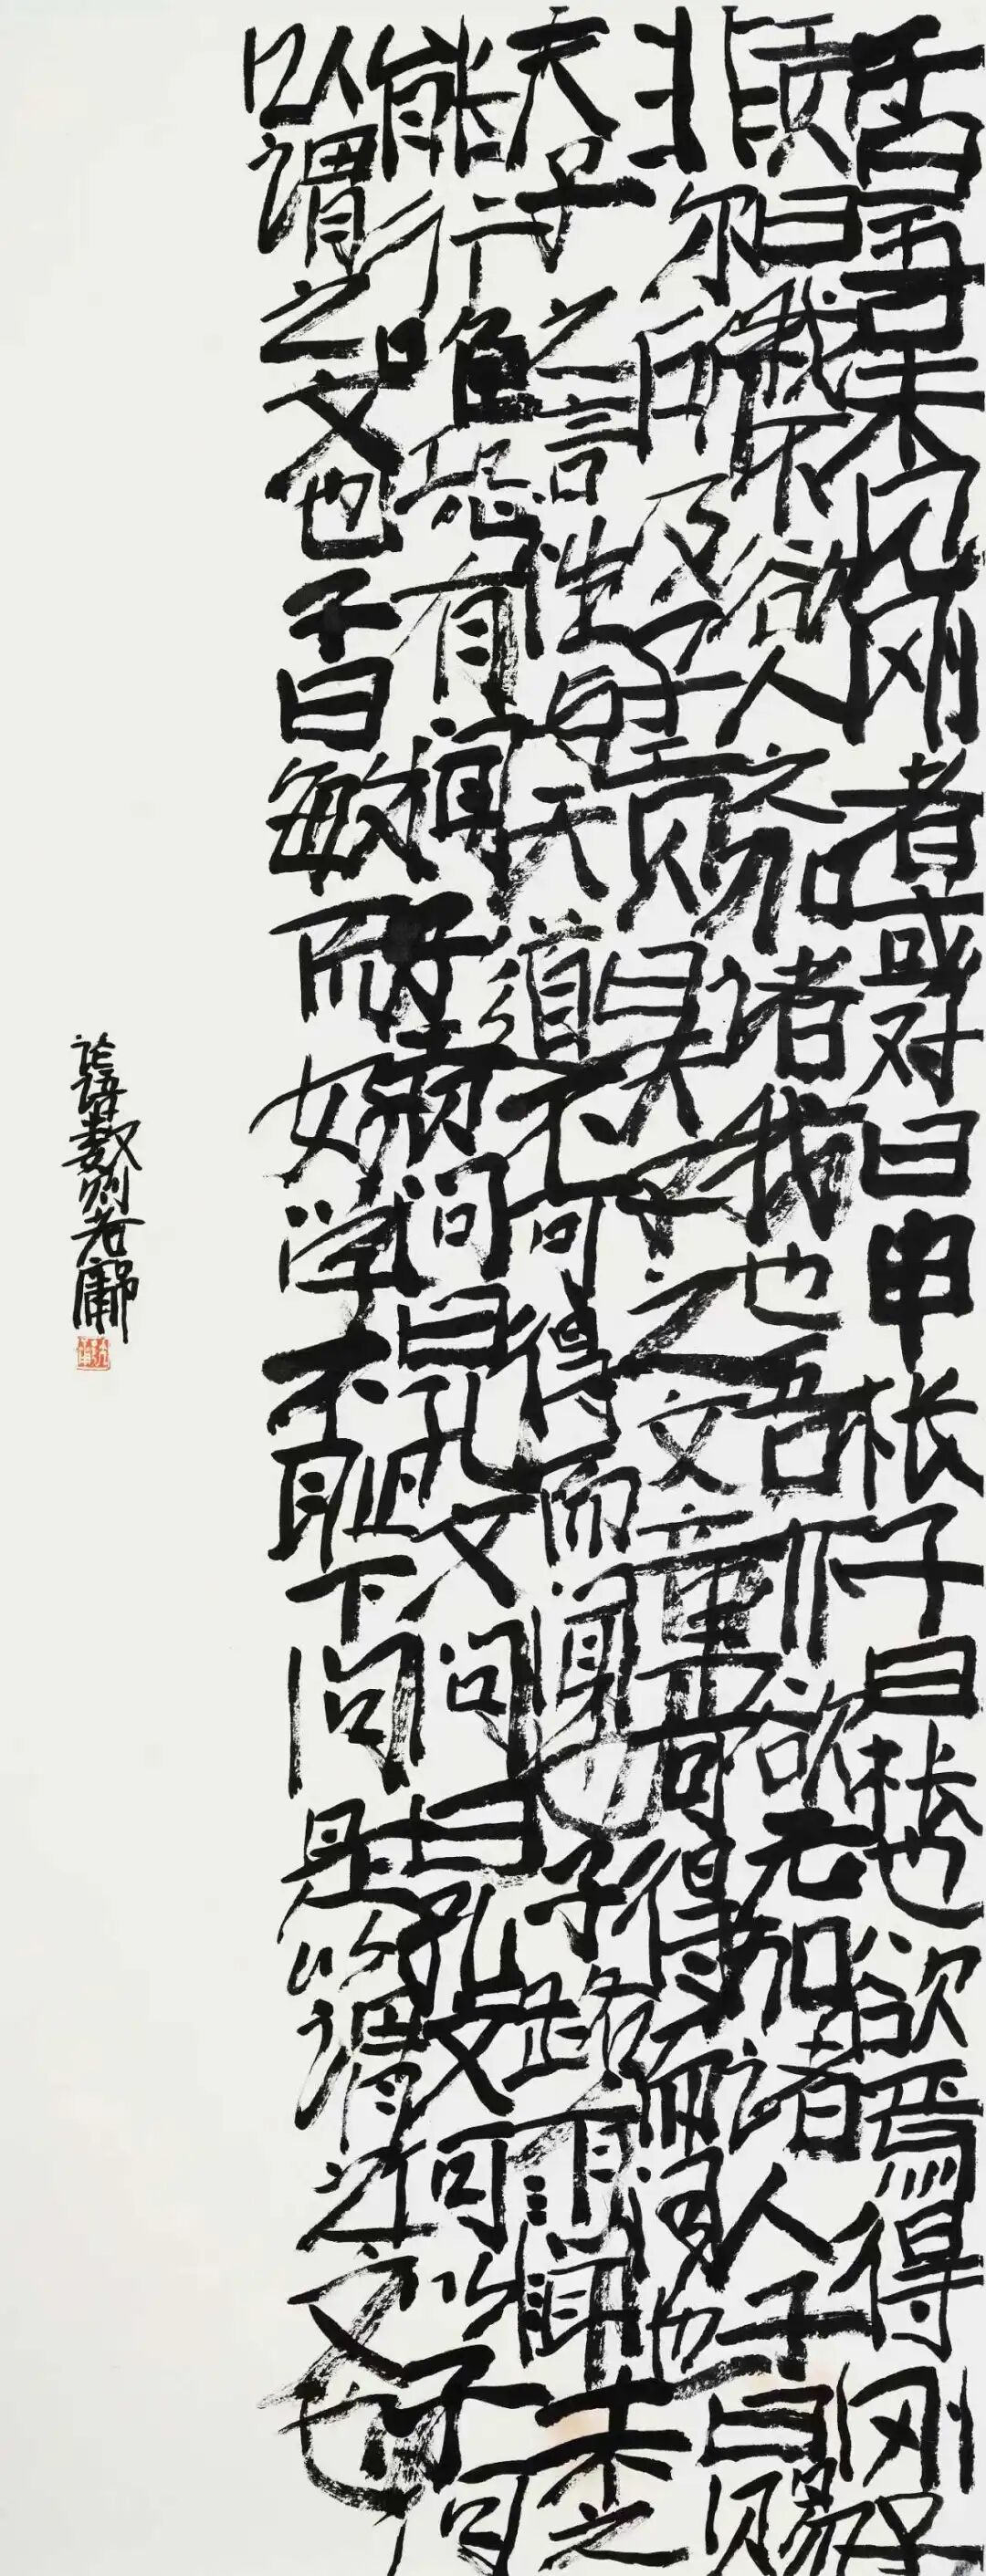 子曰吾未见刚者或对曰申枨子曰枨也欲焉得刚子
贡曰我不欲人之加诸我也吾亦欲无加诸人子曰赐
非尔所及子贡曰夫子之文章可得而闻也
夫子之言性与天道不可得而闻也子路有闻未之
能行唯恐有闻子贡问曰孔文问曰孔文何以子何
以谓之文也子曰敏而好学不耻下问是以谓之文也
论语数则